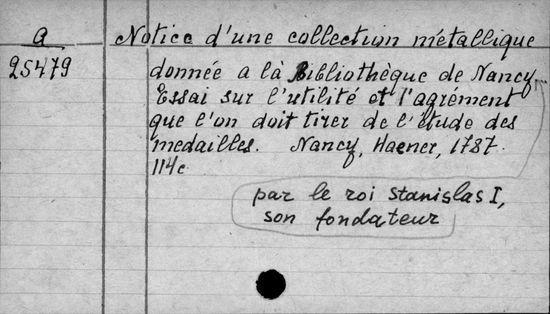 a
25479
Notice d'une collection métallique
donnée a là Bibliothèque de Nancy,...
Essai sur l'utilité et l'agrément
que l'on doit tirer de l'étude des
medailles. Nancy, Haener, 1787.
114c
par le roi Stanislas I,
son fondateur